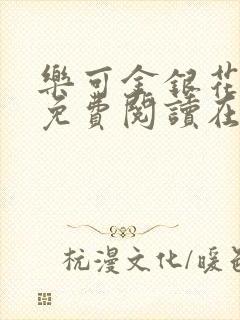 樂可金銀花
免費閱讀在
杭漫文化/暖